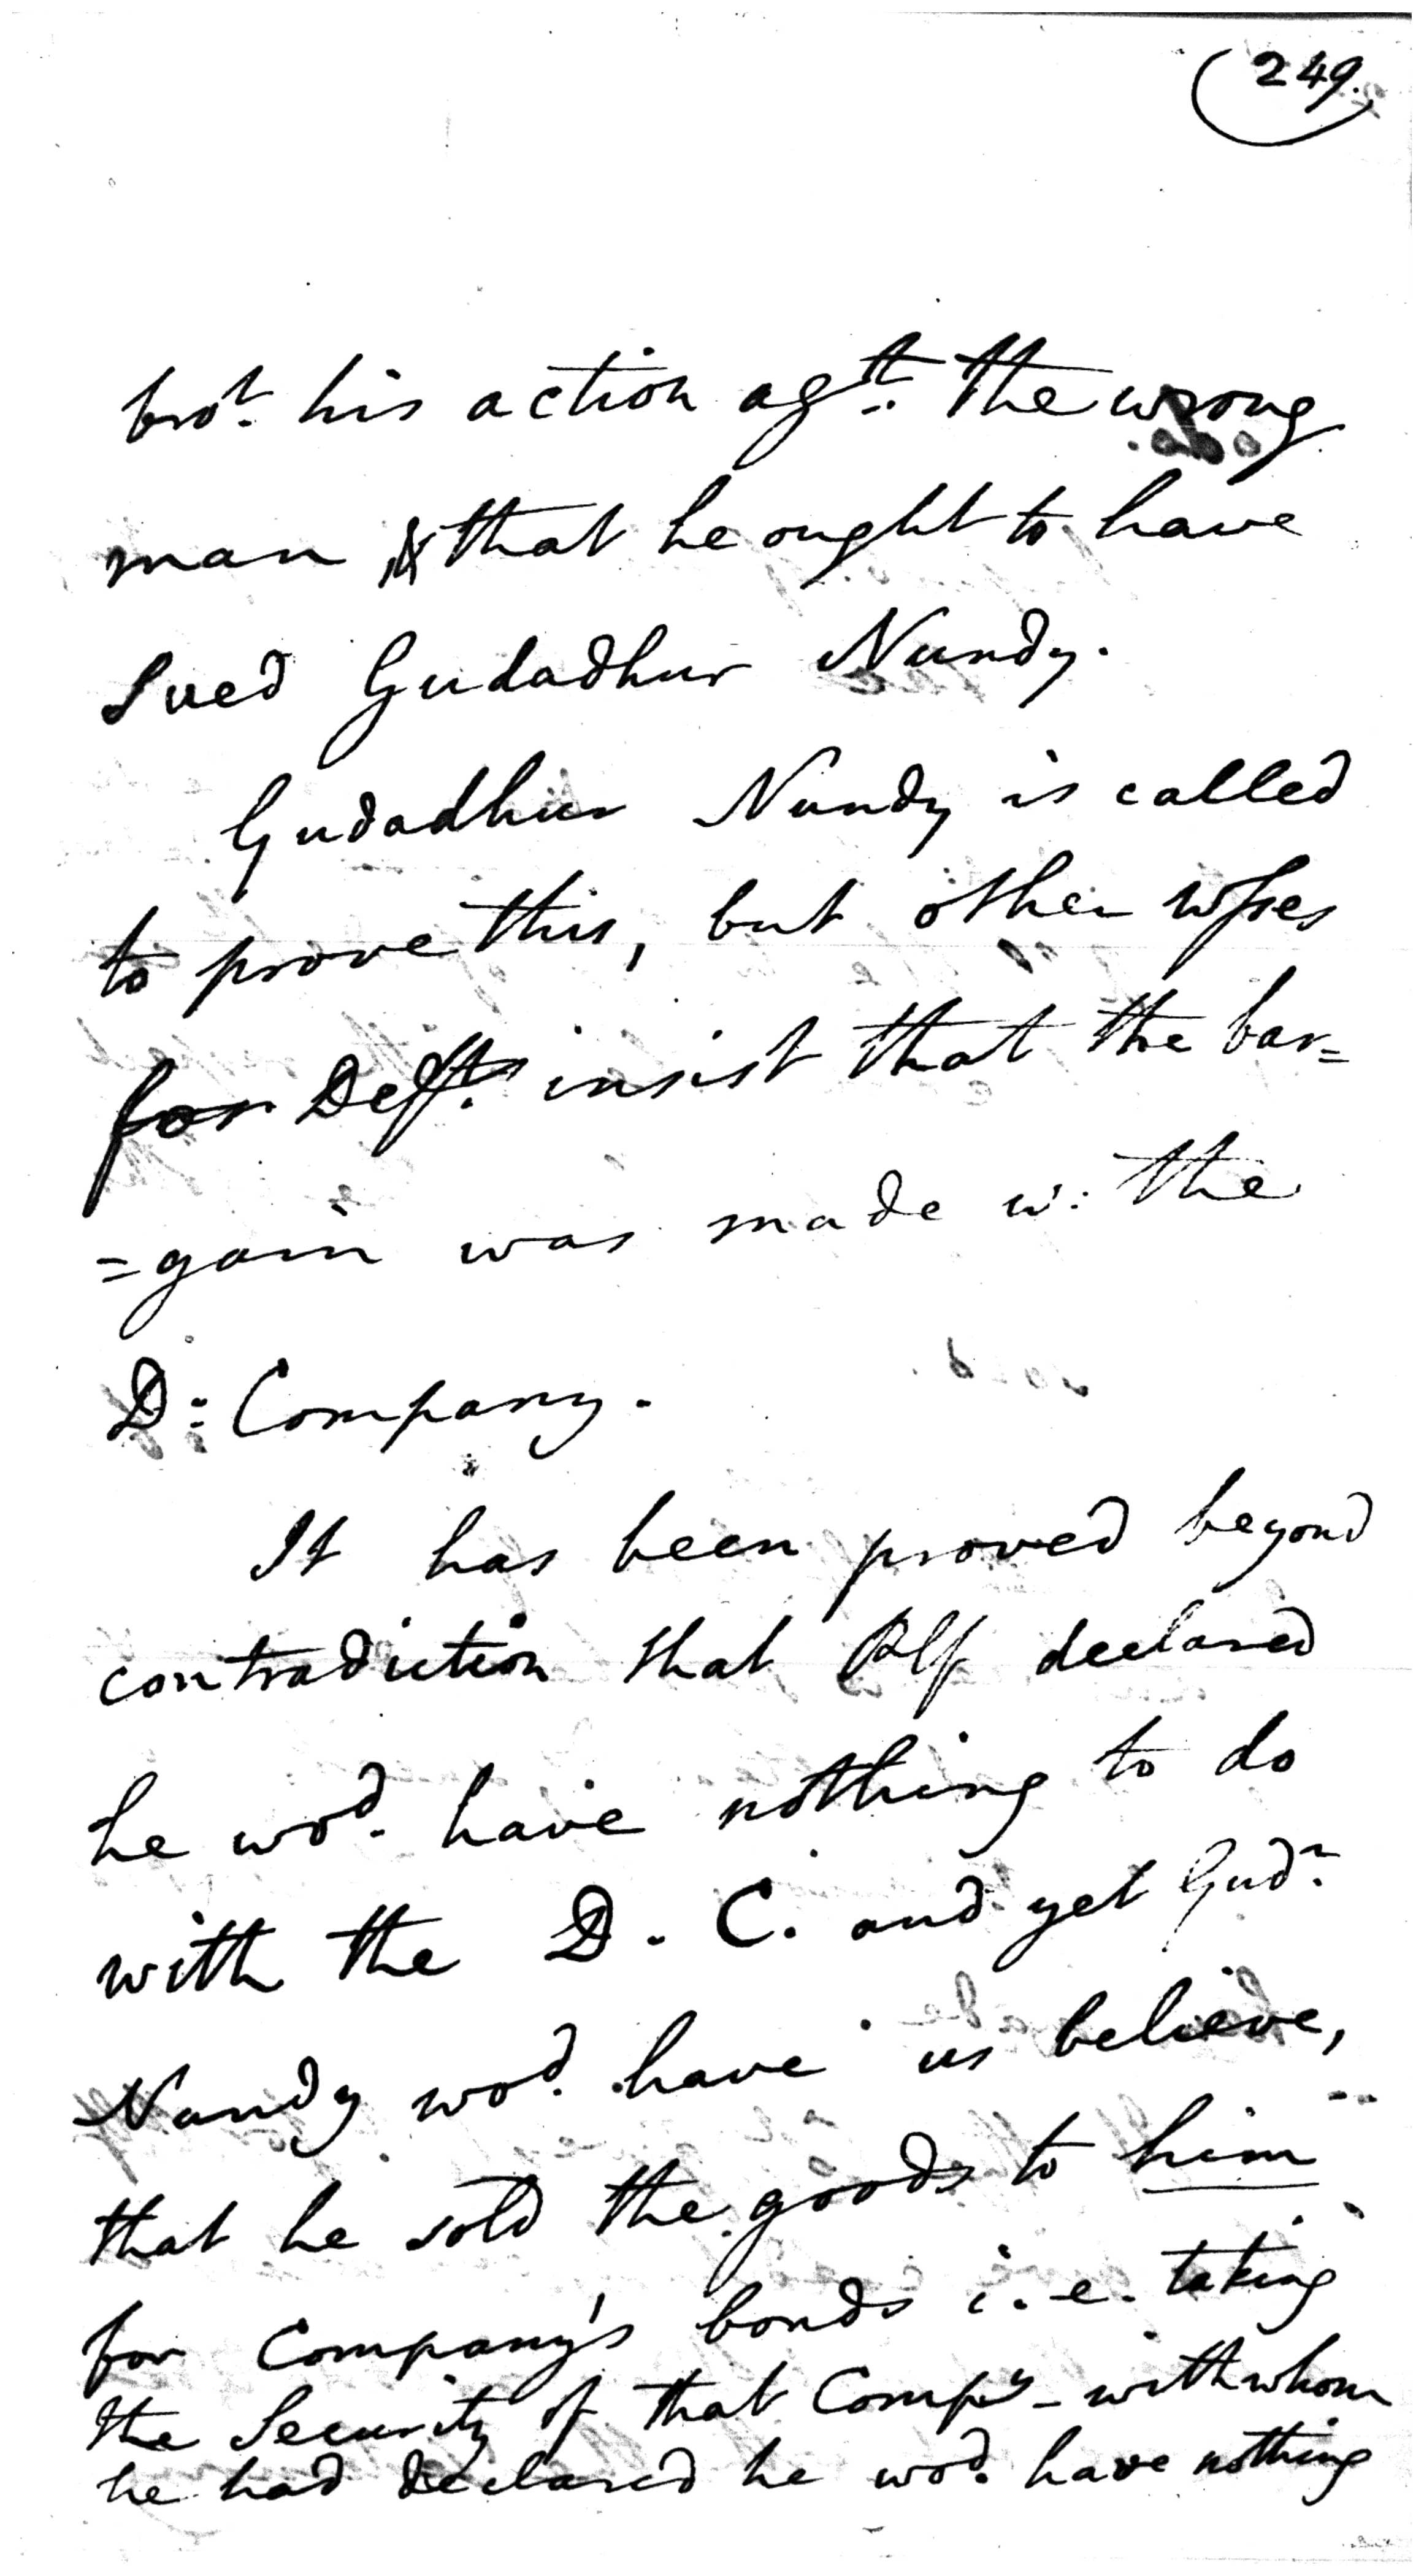 249.
bro.t his action ag.st the wrong
man & that he ought to have
Sued Gudadhur Nundy.
Gudadhur Nundy is called
to prove this, but other wsses
for Defts. insist that the bar=
=gain was made w: the
D: Company.
It has been proved beyond
contradiction that Plf declared
he wod. have nothing to do
with the D. C. and yet Gudr.
Nundy wod. have us believe,
that he sold the goods to him
for Company's bonds i.e. taking
the Security of that Compy - with whom
he had declared he wod. have nothing